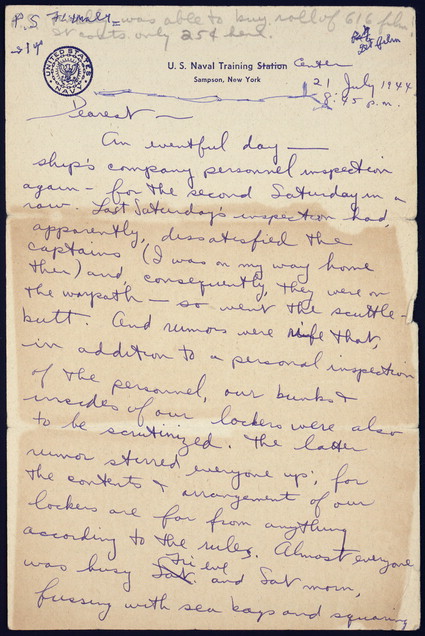 P.S. Finally was able to buy roll of 616 film.
It costs only 25¢ here.
get film
UNITED STATES NAVY
U. S. Naval Training Station Center
Sampson, New York
21 July 1944
8:45 p.m.
Dearest —
An eventful day —
ship's company personnel inspection
again — for the second Saturday in a
row. Last Saturday's inspection had,
apparently, dissatisfied the
captains (I was on my way home
then) and, consequently, they were on
the warpath — so went the scuttle-
butt. And rumors were rife that,
in addition to a personal inspection
of the personnel, our bunks &
insides of our lockers were also
to be scrutinized. The latter
rumor stirred everyone up; for
the contents & arrangement of our
lockers are far from anything
according to the rules. Almost everyone
was busy Sat. Fri eve and Sat morn,
fussing with sea bags and squaring